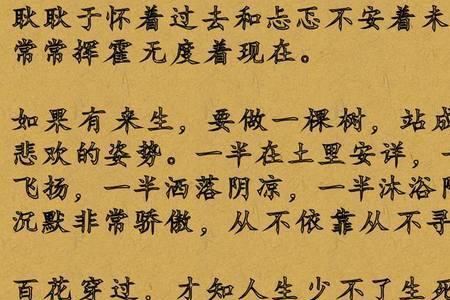 耿耿于怀着过去和忐忑不安着未
常常挥霍无度着现在。
如果有来生，要做一棵树，站成
悲欢的姿势。一半在土里安详，一
飞扬，一半洒落阴凉，一半沐浴阳
沉默非常骄傲，从不依靠从不寻
百花穿过，才知人生少不了生死